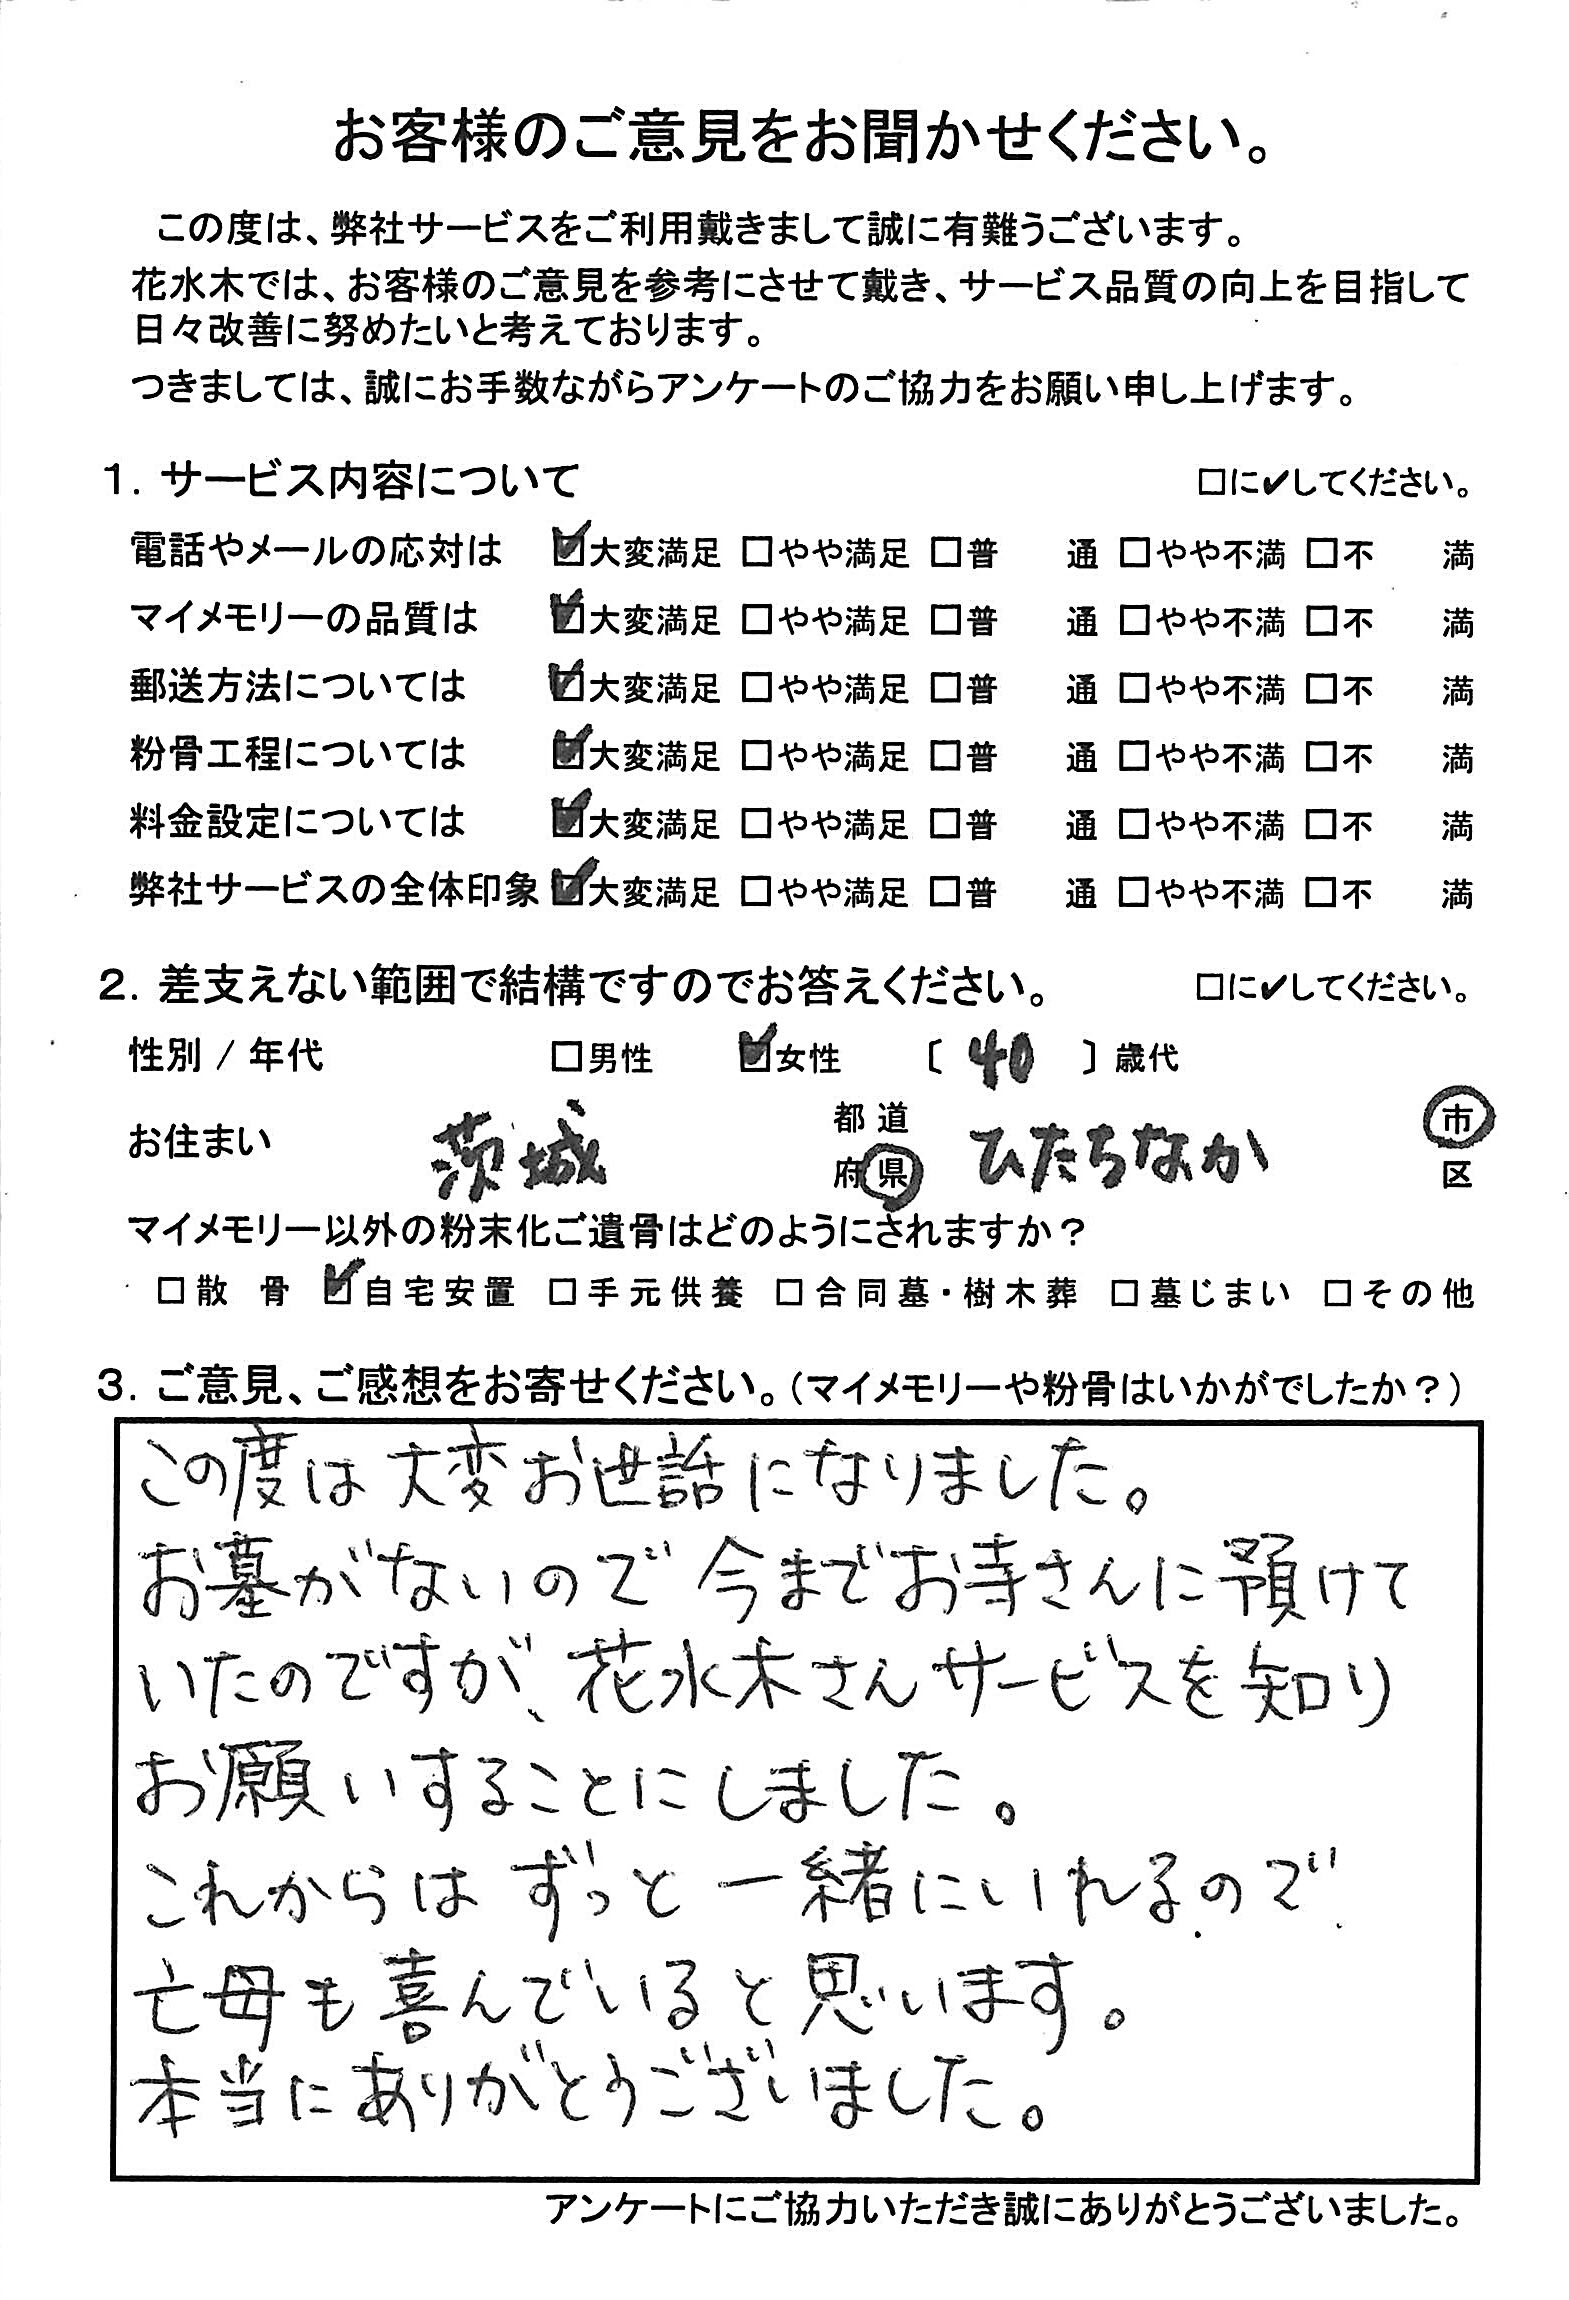 お客様のご意見をお聞かせください。
この度は、弊社サービスをご利用戴きまして誠に有難うございます。
花水木では、お客様のご意見を参考にさせて戴き、サービス品質の向上を目指して
日々改善に努めたいと考えております。
つきましては、誠にお手数ながらアンケートのご協力をお願い申し上げます。
1. サービス内容について □に✔してください。
電話やメールの応対は ☑大変満足 □やや満足 □普 通 □やや不満 □不 満
マイメモリーの品質は ☑大変満足 □やや満足 □普 通 □やや不満 □不 満
郵送方法については ☑大変満足 □やや満足 □普 通 □やや不満 □不 満
粉骨工程については ☑大変満足 □やや満足 □普 通 □やや不満 □不 満
料金設定については ☑大変満足 □やや満足 □普 通 □やや不満 □不 満
弊社サービスの全体印象 ☑大変満足 □やや満足 □普 通 □やや不満 □不 満
2. 差支えない範囲で結構ですのでお答えください。 □に✔してください。
性別 / 年代 □男性 ☑女性 〔 40 〕歳代
お住まい 茨城 都道府県 ひたちなか 市区
マイメモリー以外の粉末化ご遺骨はどのようにされますか？
□散 骨 ☑自宅安置 □手元供養 □合同墓・樹木葬 □墓じまい □その他
3. ご意見、ご感想をお寄せください。（マイメモリーや粉骨はいかがでしたか？）
この度は大変お世話になりました。
お墓がないので今までお寺さんに預けて
いたのですが、花水木さんサービスを知り
お願いすることにしました。
これからはずっと一緒にいれるので
亡母も喜んでいると思います。
本当にありがとうございました。
アンケートにご協力いただき誠にありがとうございました。